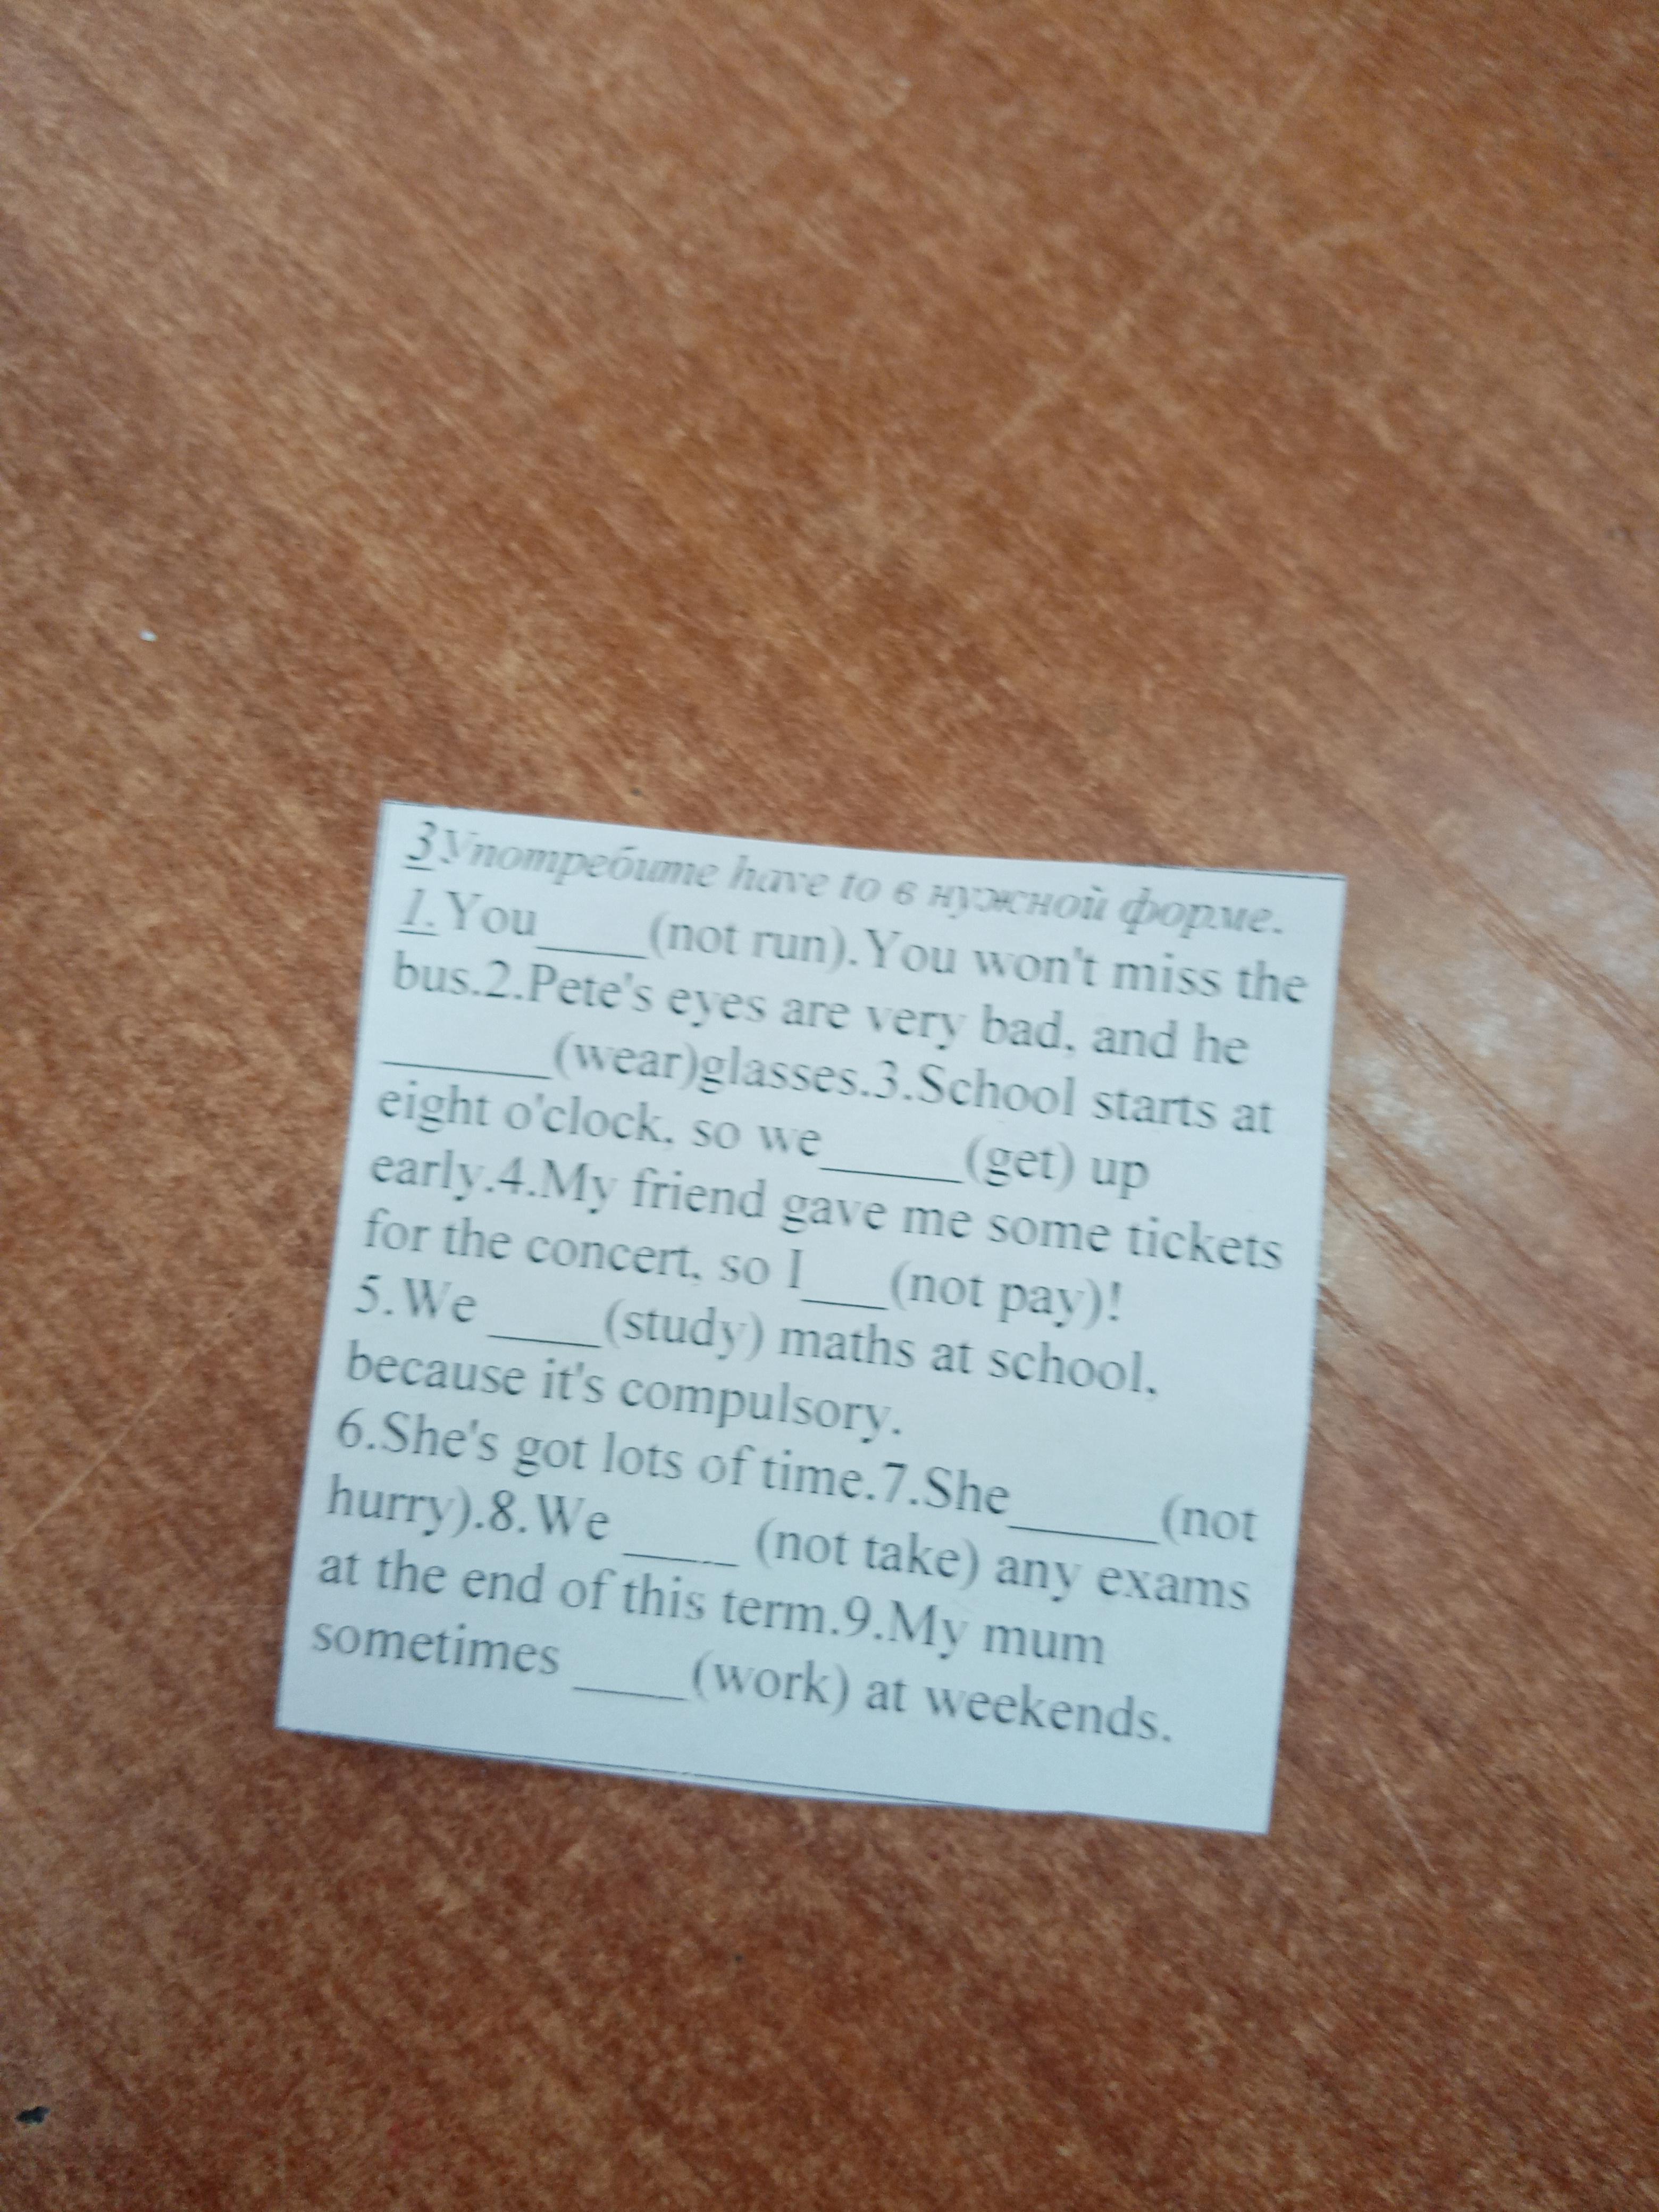 3 Употребите have to в нужной форме.
1.You____(not run).You won't miss the
bus.2.Pete's eyes are very bad, and he
______(wear)glasses.3.School starts at
eight o'clock, so we_____(get) up
early.4.My friend gave me some tickets
for the concert, so I___(not pay)!
5.We ____(study) maths at school,
because it's compulsory.
6.She's got lots of time.7.She_____(not
hurry).8.We ____ (not take) any exams
at the end of this term.9.My mum
sometimes ____(work) at weekends.